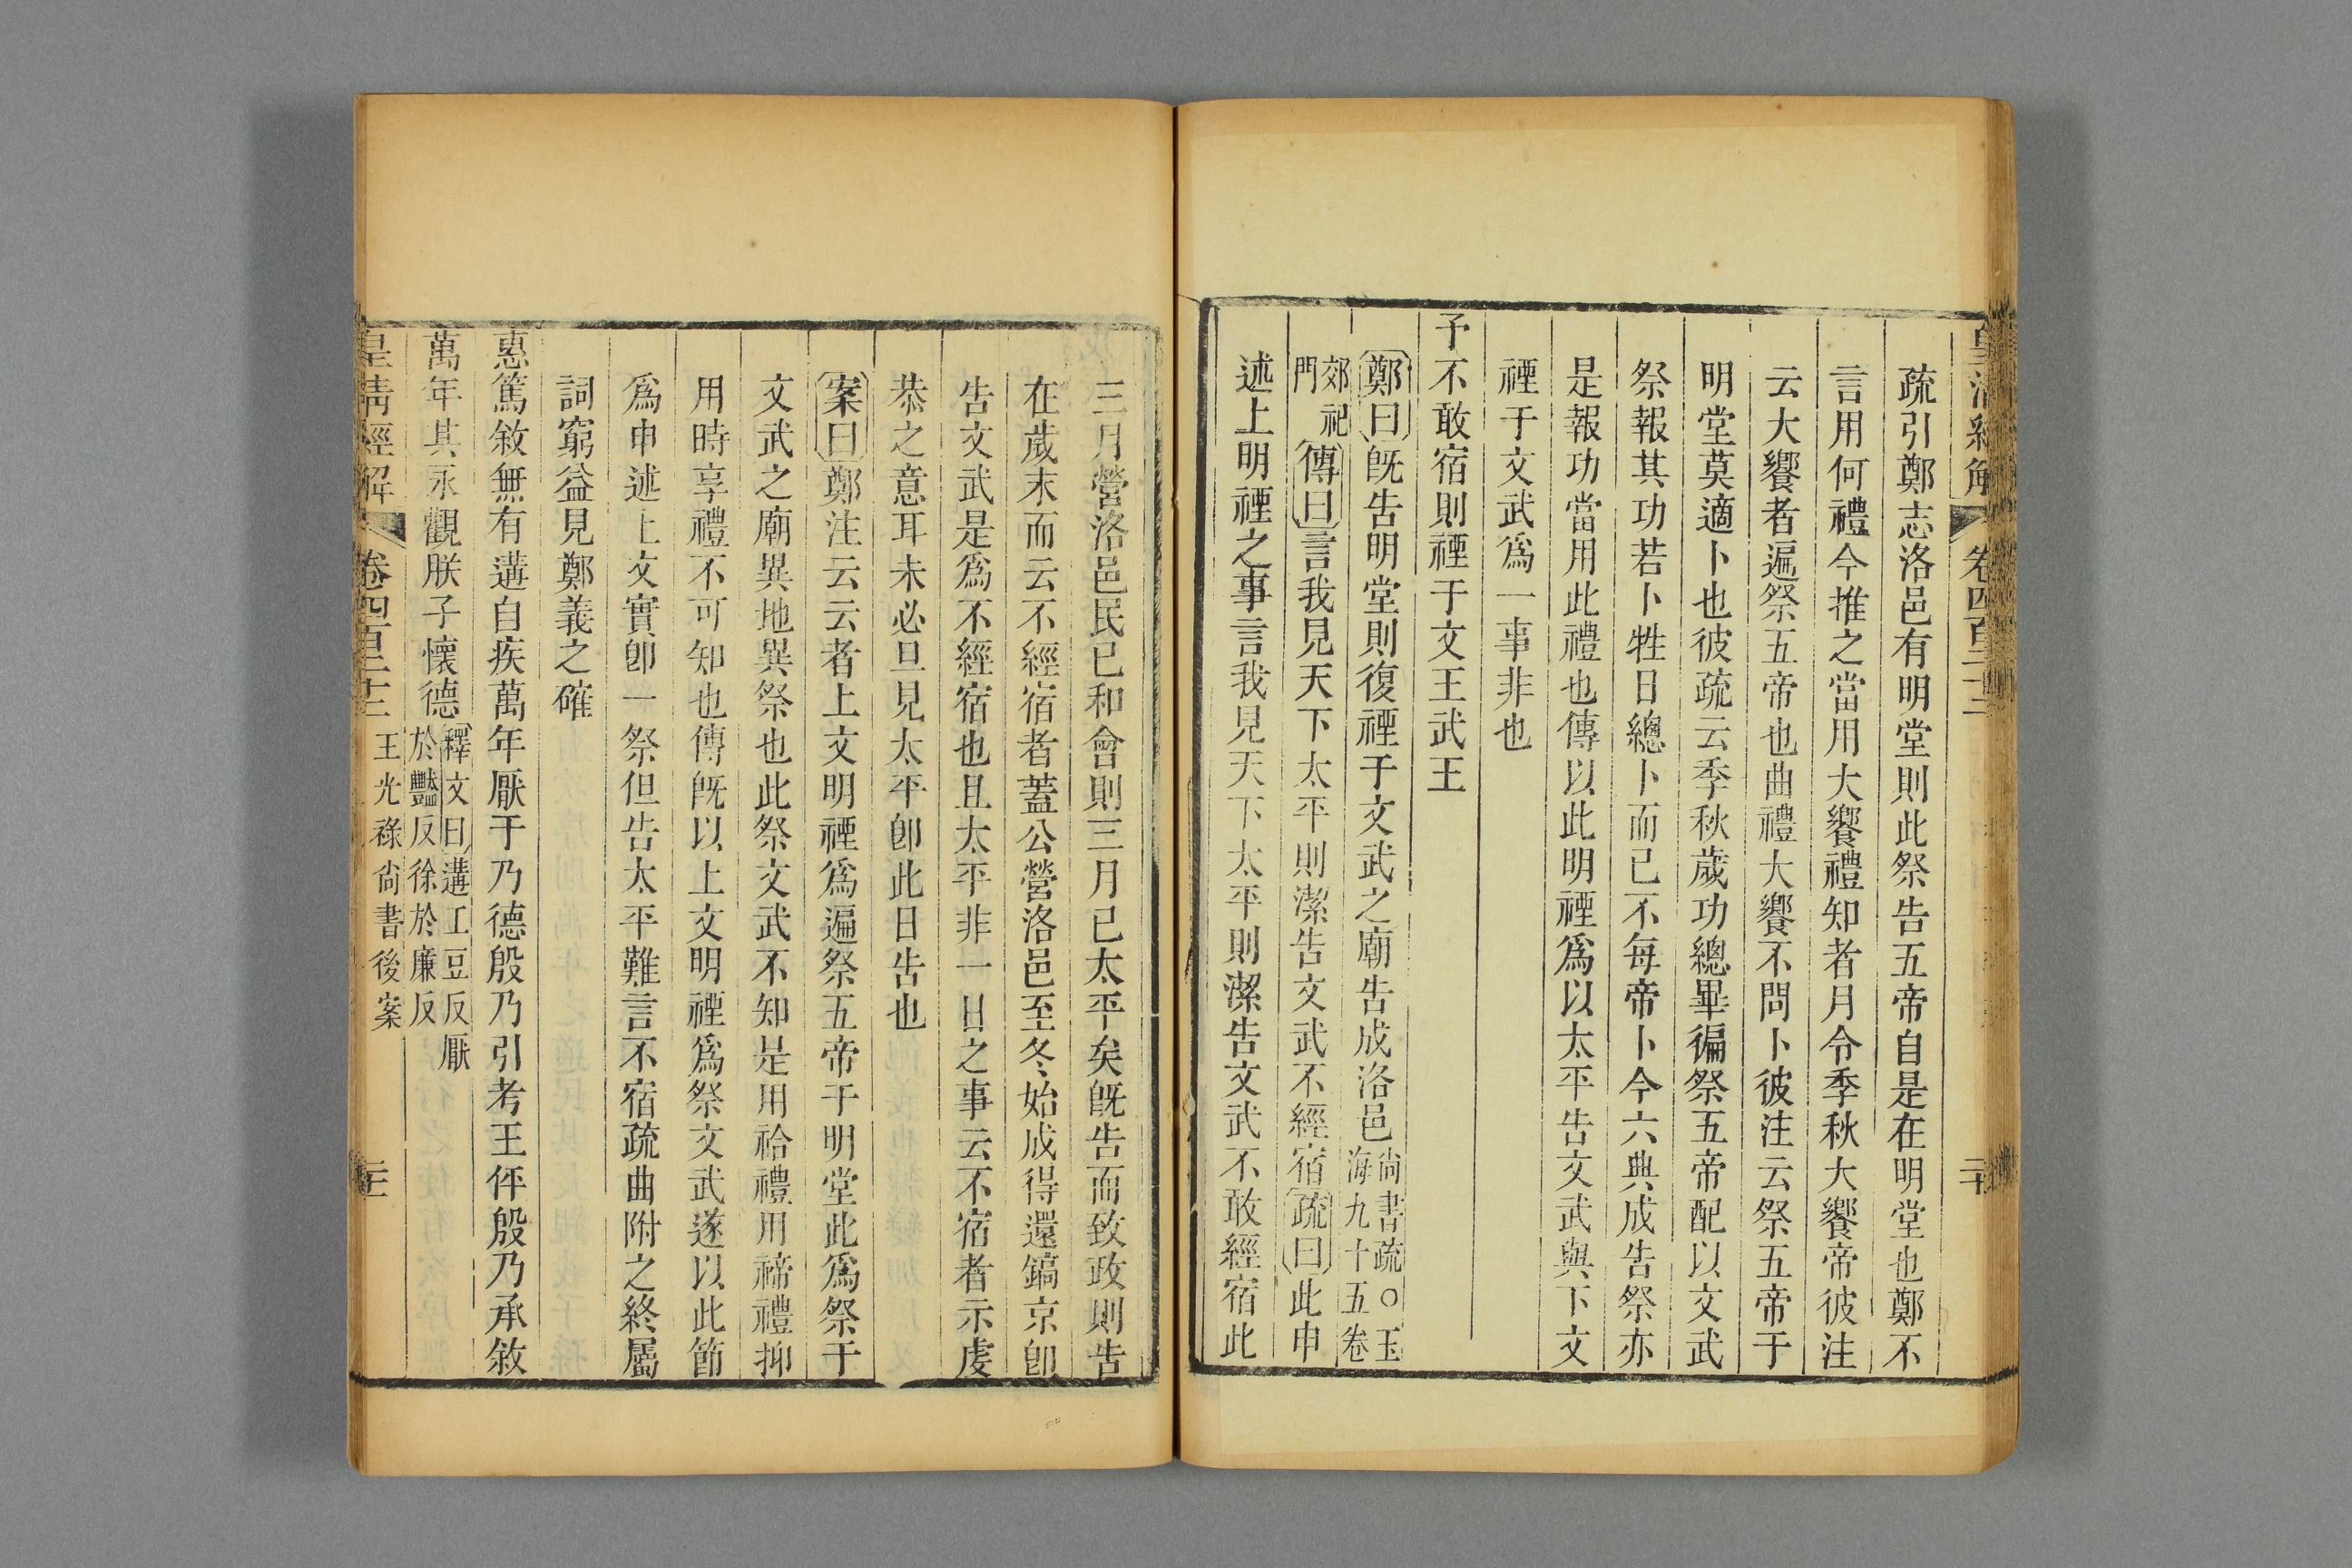 皇清經解 卷四百二十三 二十
疏引鄭志洛邑有明堂則此祭告五帝自是在明堂也鄭不
言用何禮今推之當用大饗禮知者月令季秋大饗帝彼注
云大饗者遍祭五帝也曲禮大饗不問卜彼注云祭五帝于
明堂莫適卜也彼疏云季秋歲功總畢徧祭五帝配以文武
祭報其功若卜牲日總卜而已不每帝卜今六典成告祭亦
是報功當用此禮也傳以此明禋爲以太平告文武與下文
禋于文武爲一事非也
予不敢宿則禋于文王武王
鄭曰旣告明堂則復禋于文武之廟告成洛邑尙書疏○玉海九十五卷
郊祀門傳曰言我見天下太平則潔告文武不經宿疏曰此申
述上明禋之事言我見天下太平則潔告文武不敢經宿此
三月營洛邑民已和會則三月已太平矣旣告而致政則告
在歲末而云不經宿者蓋公營洛邑至冬始成得還鎬京卽
告文武是爲不經宿也且太平非一日之事云不宿者示虔
恭之意耳未必旦見太平卽此日告也
案曰鄭注云云者上文明禋爲遍祭五帝于明堂此爲祭于
文武之廟異地異祭也此祭文武不知是用祫禮用禘禮抑
用時享禮不可知也傳旣以上文明禋爲祭文武遂以此節
爲申述上文實卽一祭但告太平難言不宿疏曲附之終屬
詞窮益見鄭義之確
惠篤敘無有遘自疾萬年厭于乃德殷乃引考王伻殷乃承敘
萬年其永觀朕子懷德釋文曰遘工豆反厭於豔反徐於廉反
皇清經解 卷四百二十三 王光祿尙書後案